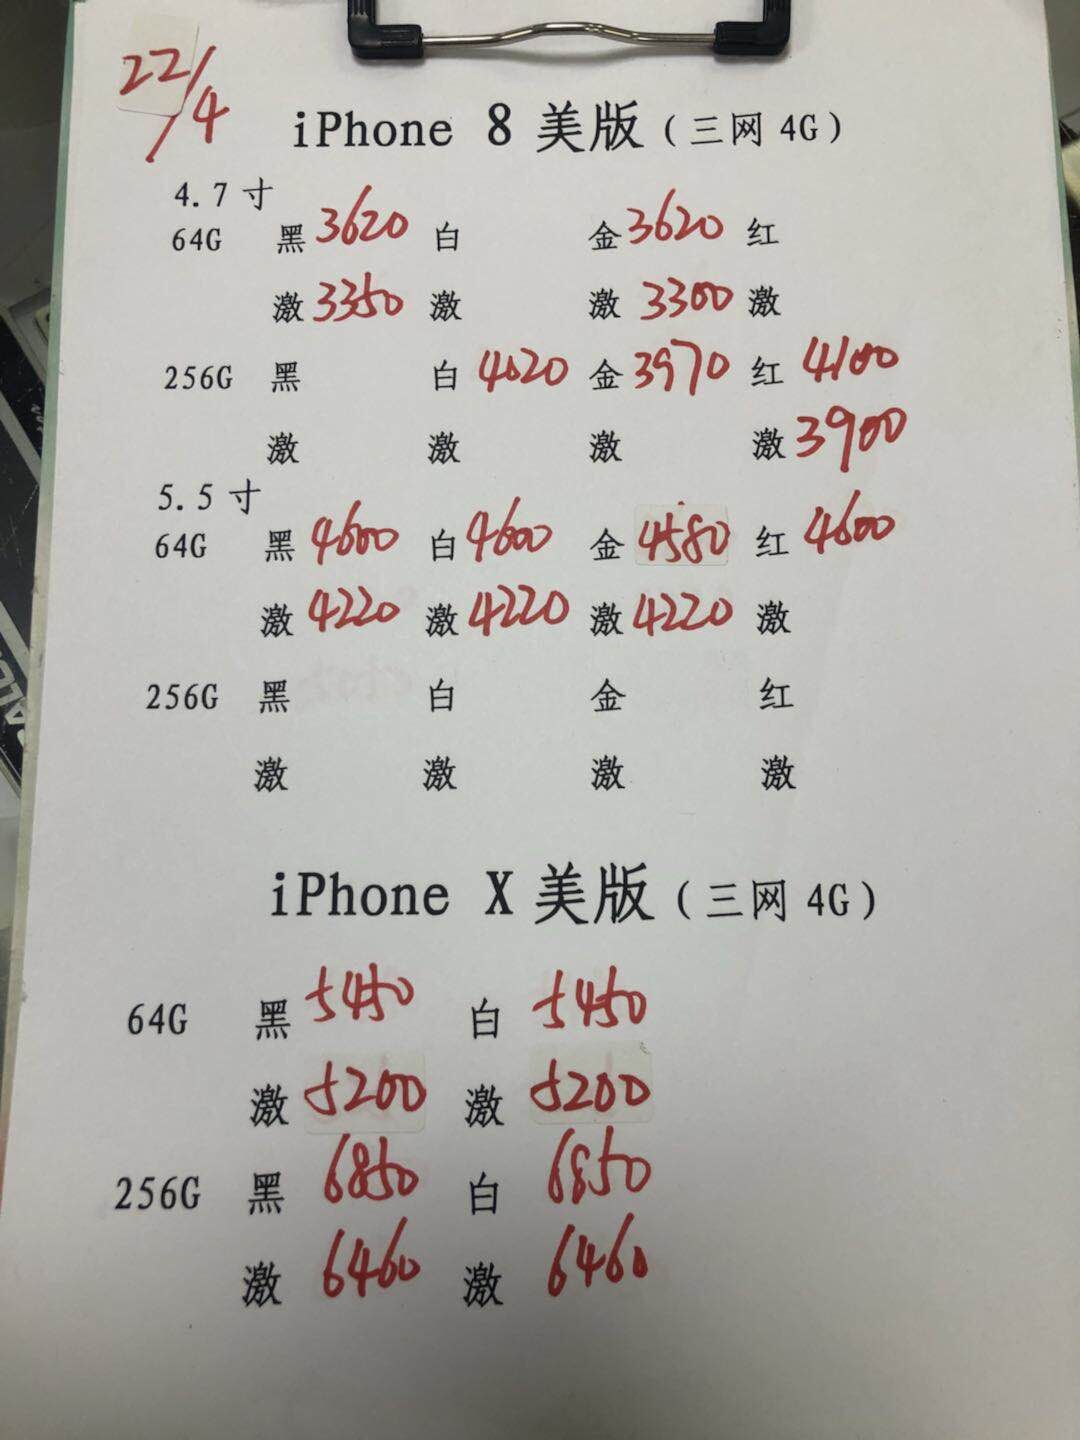 22/4
iPhone 8 美版（三网 4G）
4.7 寸
64G 黑 3620 白 金 3620 红
激 3350 激 激 3300 激
256G 黑 白 4020 金 3970 红 4100
激 激 激 激 3900
5.5 寸
64G 黑 4600 白 4600 金 4580 红 4600
激 4220 激 4220 激 4220 激
256G 黑 白 金 红
激 激 激 激
iPhone X 美版（三网 4G）
64G 黑 5450 白 5450
激 5200 激 5200
256G 黑 6850 白 6850
激 6460 激 6460